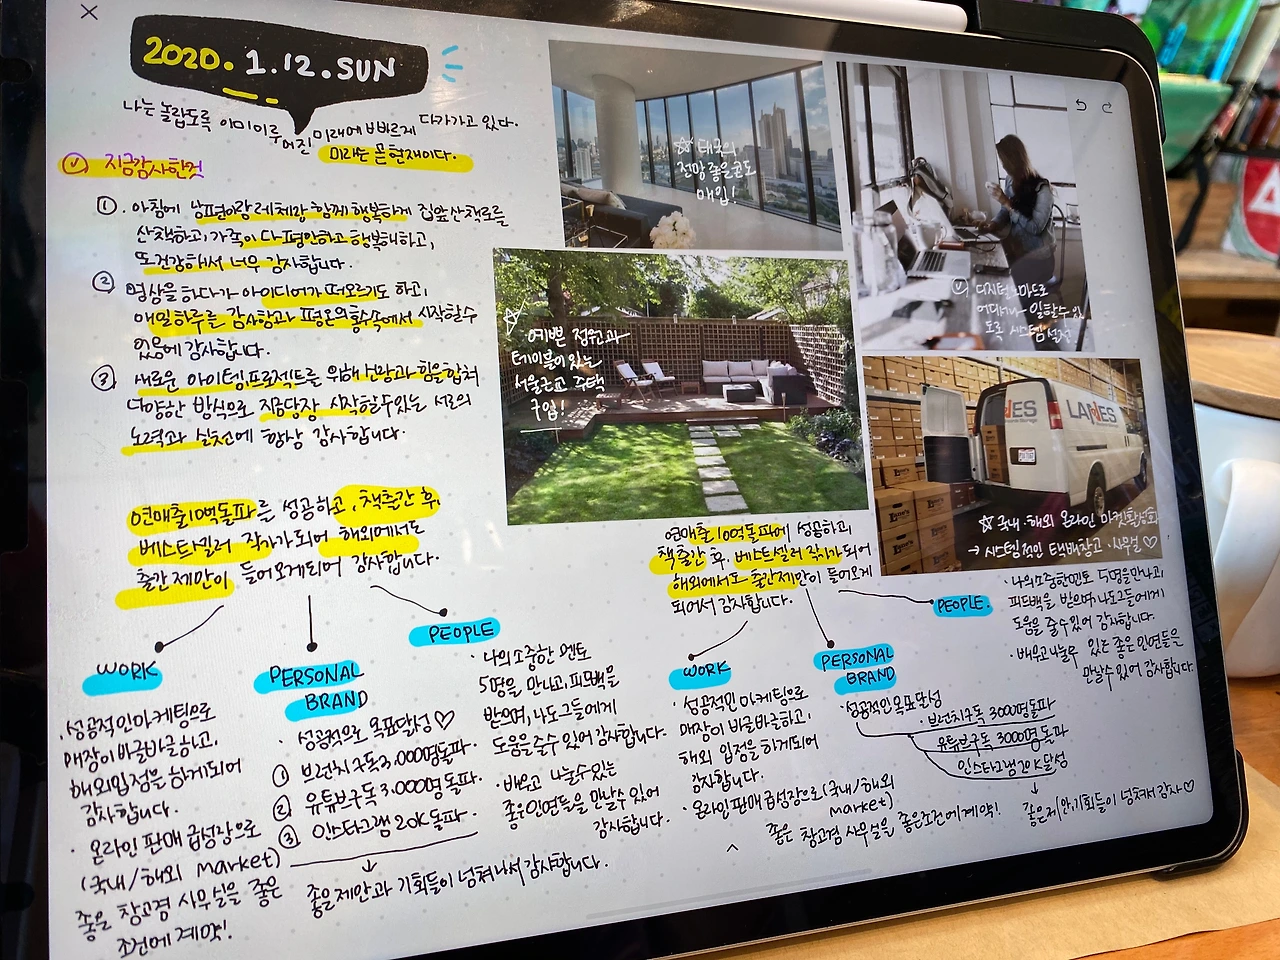 2020. 1.12.SUN
나는 놀랍도록 이미 이루어진 미래에 빠르게 다가가고 있다.
미래는 곧 현재이다.
지금 감사한 것
①. 아침에 남편이랑 레체랑 함께 행복하게 집앞 산책로를
산책하고, 가족이 다 평안하고 행복해하고,
또 건강해서 너무 감사합니다.
② 명상을 하다가 아이디어가 떠오르기도 하고,
매일 하루를 감사함과 평온의 황속에서 시작할수
있음에 감사합니다.
③ 새로운 아이템, 프로젝트를 위해 힘을 합쳐
다양한 방식으로 지금 당장 시작할 수 있는 서로의
노력과 실천에 항상 감사합니다.
연매출 10억 돌파를 성공하고, 책출간 후,
베스트셀러 작가가 되어 해외에서도
출간제안이 들어오게되어 감사합니다.
WORK
· 성공적인 마케팅으로
매장이 바글바글하고,
해외입점을 하게되어
감사합니다.
· 온라인 판매 급성장으로
(국내/해외 market)
좋은 창고겸 사무실을 좋은
조건에 계약!
PERSONAL
BRAND
· 성공적으로 목표달성♡
① 브런치구독 3.000명 돌파.
② 유튜브구독 3.000명 돌파.
③ 인스타그램 20K 돌파.
↓
좋은 제안과 기회들이 넘쳐나서 감사합니다.
PEOPLE
· 나의 소중한 멘토
5명을 만나고, 피드백을
받으며, 나도 그들에게
도움을 줄수 있어 감사합니다.
· 배우고 나눌수 있는
좋은 인연들을 만날수 있어
감사합니다.
☆ 태국의
전망 좋은 콘도
매입!
예쁜 정원과
테이블이 있는
서울근교 주택
구입!
디지털노마드로
어디서나 일할 수 있
도록 시스템 설정
LAMES
☆ 국내·해외 온라인 마켓 활성화
→ 시스템적인 택배창고·사무실♡
연매출 10억돌파에 성공하고,
책출간 후, 베스트셀러 작가가 되어
해외에서도 출간제안이 들어오게
되어서 감사합니다.
WORK
· 성공적인 마케팅으로
매장이 바글바글하고,
해외 입점을 하게되어
감사합니다.
· 온라인 판매 급성장으로(국내/해외
market)
좋은 창고겸 사무실을 좋은조건에 계약!
PERSONAL
BRAND
· 성공적인 목표달성
· 브런치구독 3000명 돌파
유튜브구독 3000명 돌파
인스타그램 20K 달성
↓
좋은 기회들이 넘쳐서 감사♡
PEOPLE.
· 나의 소중한 멘토 5명을 만나고,
피드백을 받으며, 나도 그들에게
도움을 줄 수 있어 감사합니다.
· 배우고 나눌수 있는 좋은 인연들을
만날수 있어 감사합니다.